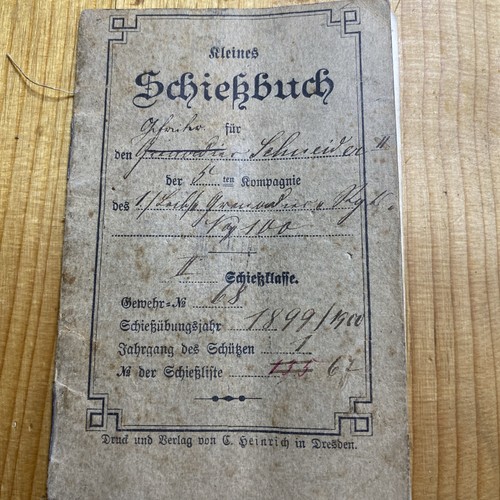 Kleines
Schießbuch
für
Gefreiter
den Grenadier Schneider II
der 5 ten Kompagnie
des 1. Leib Grenadier Regt.
No 100
II Schießklasse.
Gewehr-№ 68
Schießübungsjahr 1899/1900
Jahrgang des Schützen 1
№ der Schießliste 155 67
Druck und Verlag von C. Heinrich in Dresden.